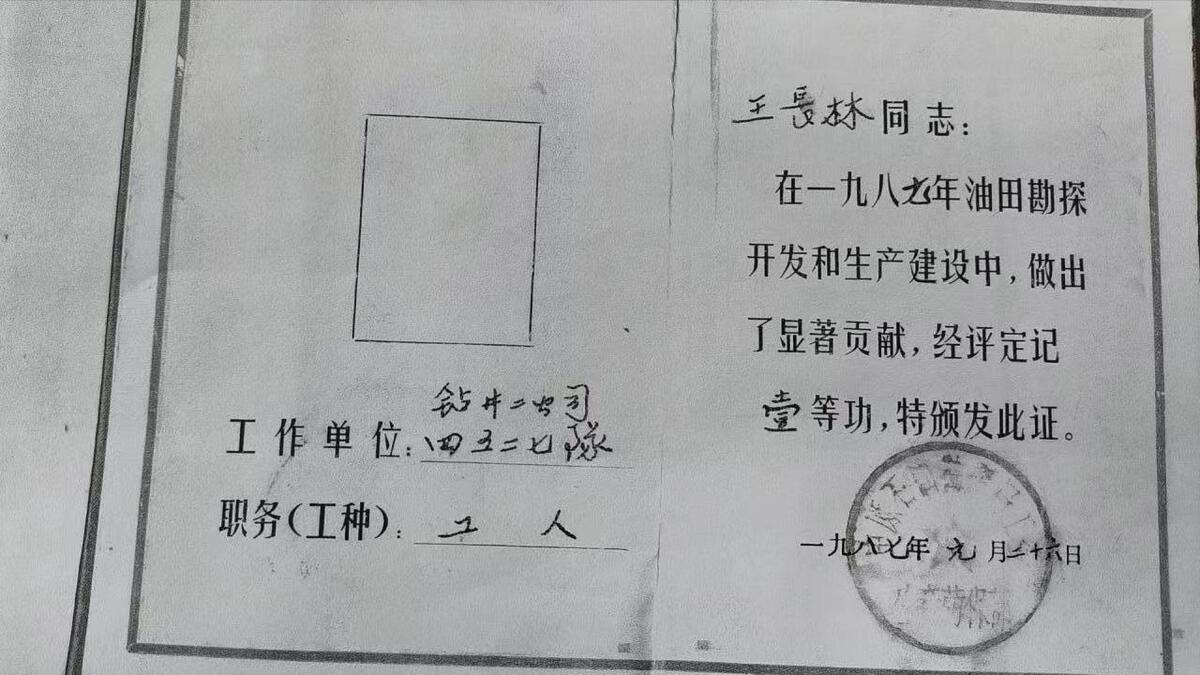 钻井二公司
工作单位：四五二七隊
职务（工种）：工人
王長林同志：
在一九八七年油田勘探
开发和生产建设中，做出
了显著贡献，经评定记
壹等功，特颁发此证。
一九八七年元月二十六日